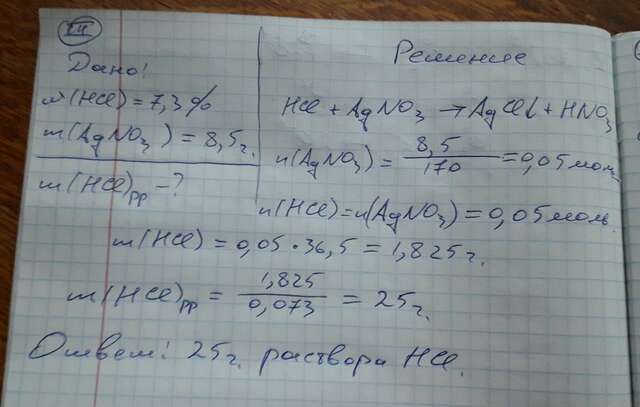 24
Дано:
w(HCl) = 7,3%
m(AgNO₃) = 8,5г.
m(HCl)рр - ?
Решение
HCl + AgNO₃ → AgCl↓ + HNO₃
n(AgNO₃) = 8,5/170 = 0,05 моль
n(HCl) = n(AgNO₃) = 0,05 моль.
m(HCl) = 0,05 · 36,5 = 1,825 г.
m(HCl)рр = 1,825/0,073 = 25 г.
Ответ: 25 г. раствора HCl.